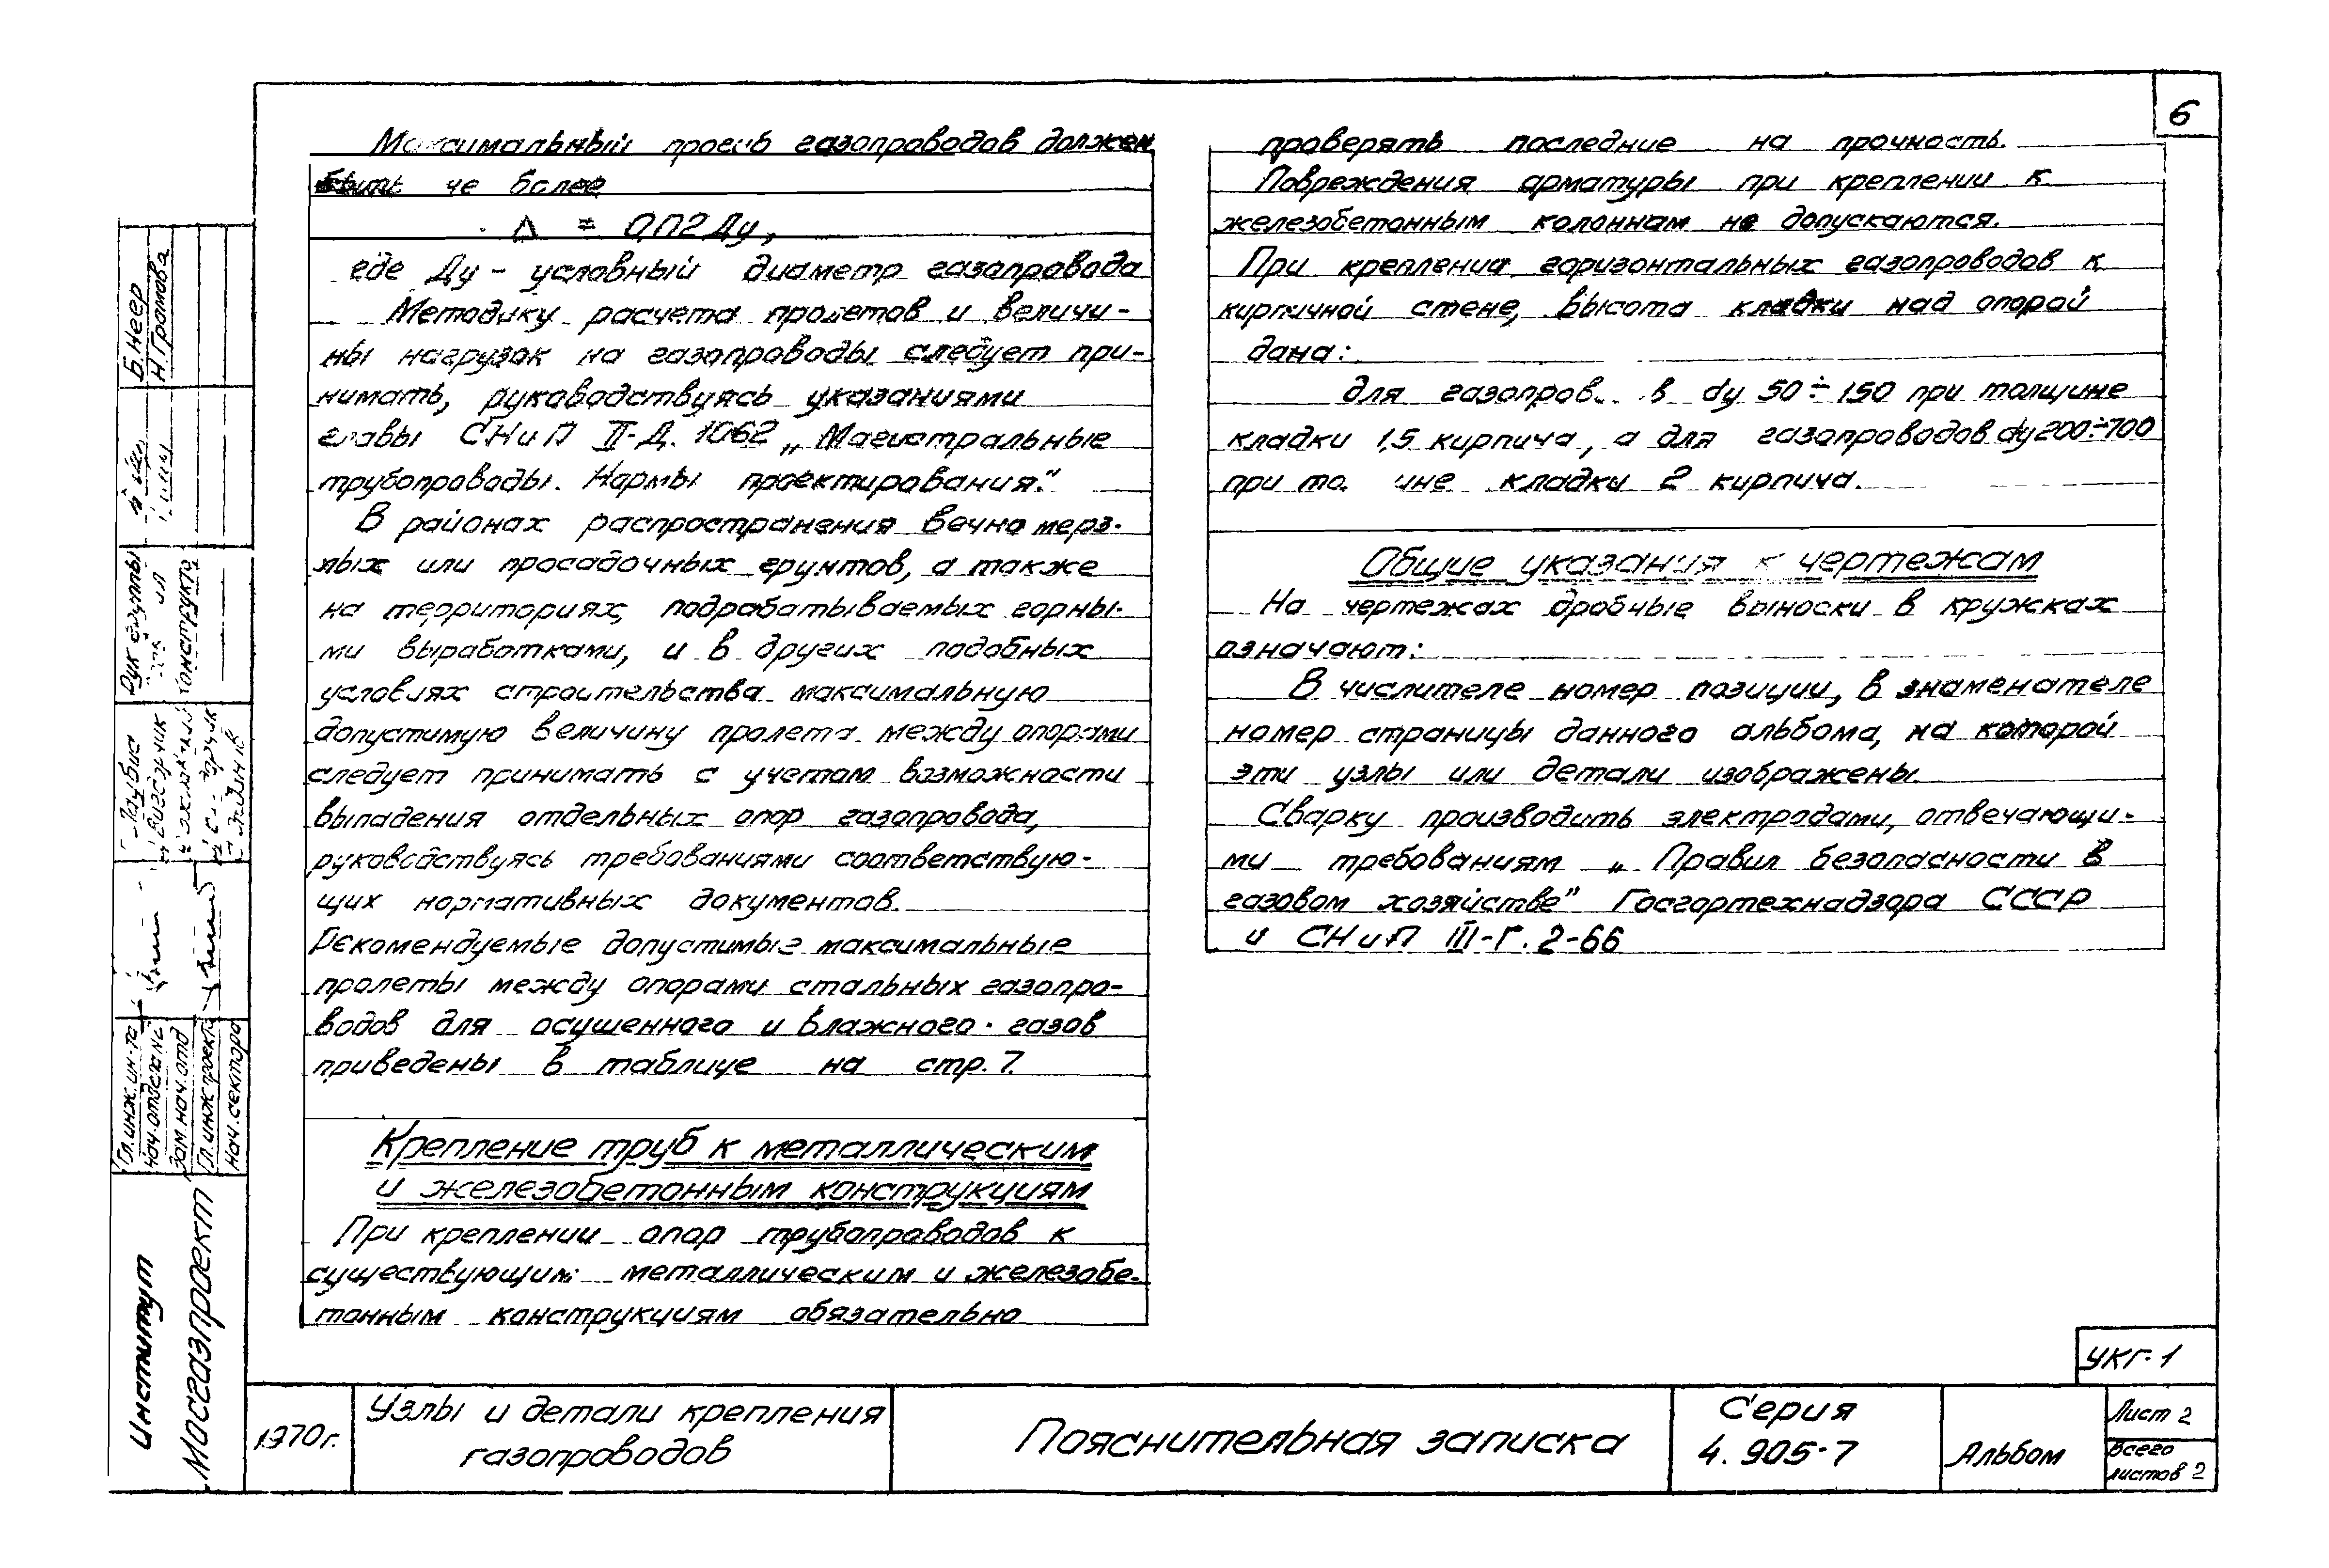 6
Максимальный прогиб газопроводов должен
быть не более
Δ = 0,02 Ду,
где Ду - условный диаметр газопровода
Методику расчета пролетов и величи-
ны нагрузок на газопроводы следует при-
нимать, руководствуясь указаниями
главы СНиП II-Д. 10-62 „Магистральные
трубопроводы. Нормы проектирования."
В районах распространения вечно мерз-
лых или просадочных грунтов, а также
на территориях, подрабатываемых горны-
ми выработками, и в других подобных
условиях строительства максимальную
допустимую величину пролета между опорами
следует принимать с учетом возможности
выпадения отдельных опор газопровода,
руководствуясь требованиями соответствую-
щих нормативных документов.
Рекомендуемые допустимые максимальные
пролеты между опорами стальных газопро-
водов для осушенного и влажного газов
приведены в таблице на стр. 7.
Крепление труб к металлическим
и железобетонным конструкциям
При креплении опор трубопроводов к
существующим металлическим и железобе-
тонным конструкциям обязательно
проверять последние на прочность.
Повреждения арматуры при креплении к
железобетонным колоннам не допускаются.
При креплении горизонтальных газопроводов к
кирпичной стене, высота кладки над опорой
дана:
для газопров в dу 50÷150 при толщине
кладки 1,5 кирпича, а для газопроводов dу 200÷700
при кладки 2 кирпича.
Общие указания к чертежам
На чертежах дробные выноски в кружках
означают:
В числителе номер позиции, в знаменателе
номер страницы данного альбома, на которой
эти узлы или детали изображены.
Сварку производить электродами, отвечающи-
ми требованиям „Правил безопасности в
газовом хозяйстве" Госгортехнадзора СССР
и СНиП III-Г. 2-66
Б.Неер
Н.Громова
Рук группы
Гл. инж. ин-та
Нач. отдела
Зам. нач. отд
Гл. инж проекта
Нач. сектора
Институт
Мосгазпроект
УКГ-1
1970г.
Узлы и детали крепления
газопроводов
Пояснительная записка
Серия
4.905-7
Альбом
Лист 2
Всего
листов 2